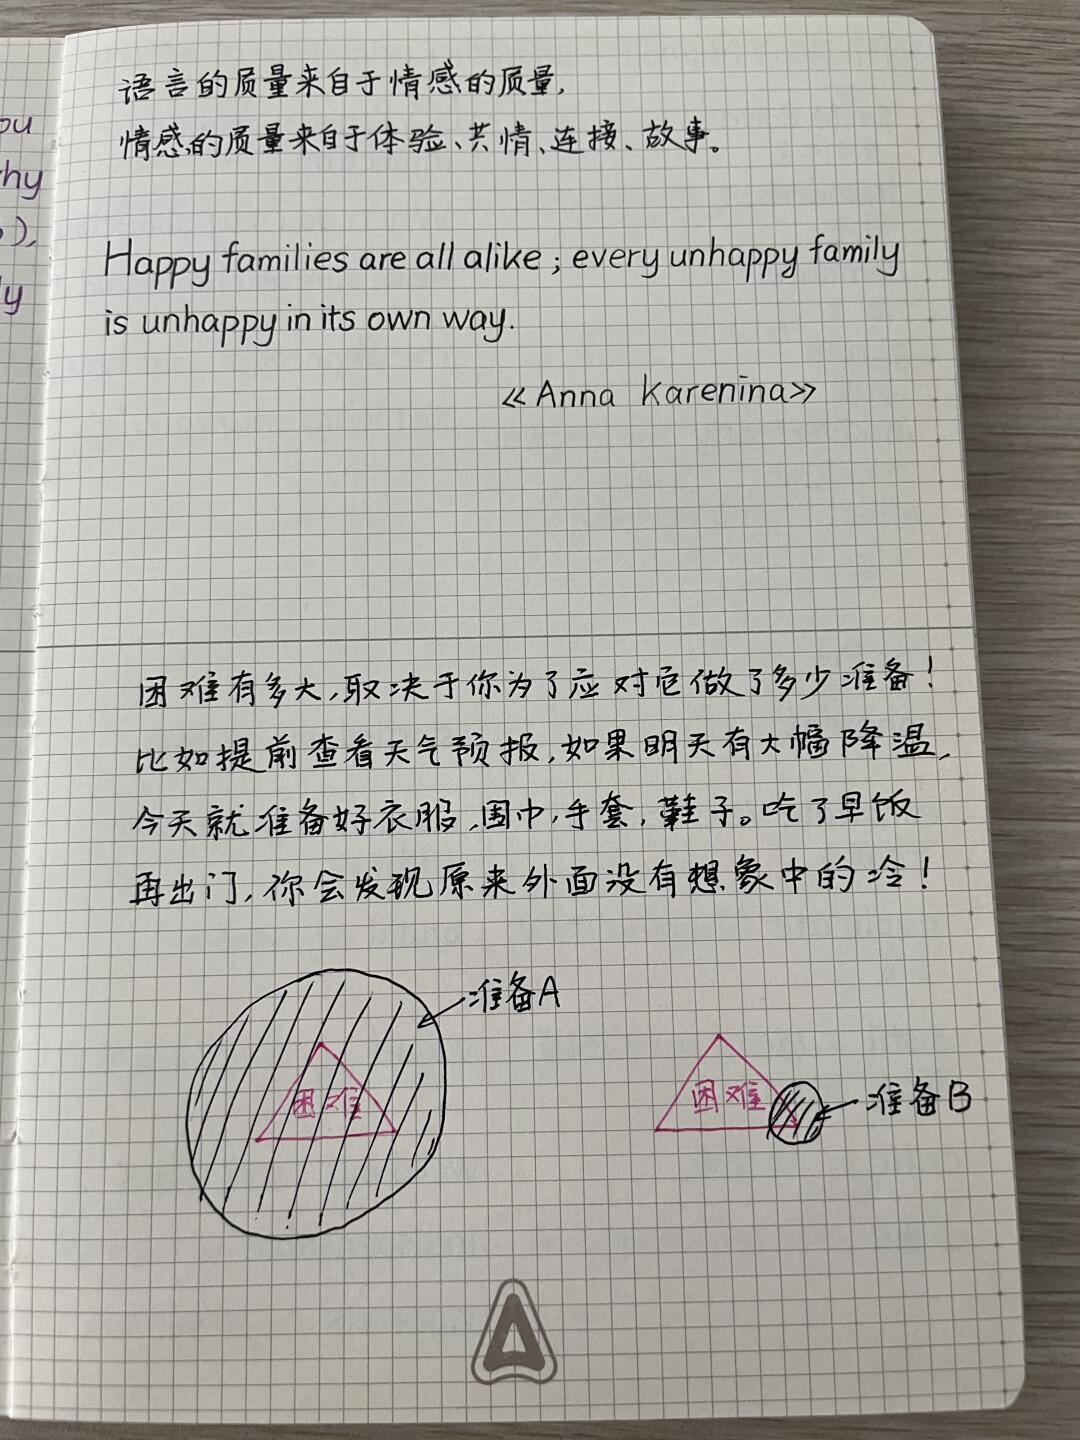 语言的质量来自于情感的质量,
情感的质量来自于体验、共情、连接、故事。
Happy families are all alike ; every unhappy family
is unhappy in its own way.
《Anna Karenina》
困难有多大,取决于你为了应对它做了多少准备!
比如提前查看天气预报,如果明天有大幅降温,
今天就准备好衣服,围巾,手套,鞋子。吃了早饭
再出门,你会发现原来外面没有想象中的冷!
准备A
困难
困难
准备B
ou
hy
),
y